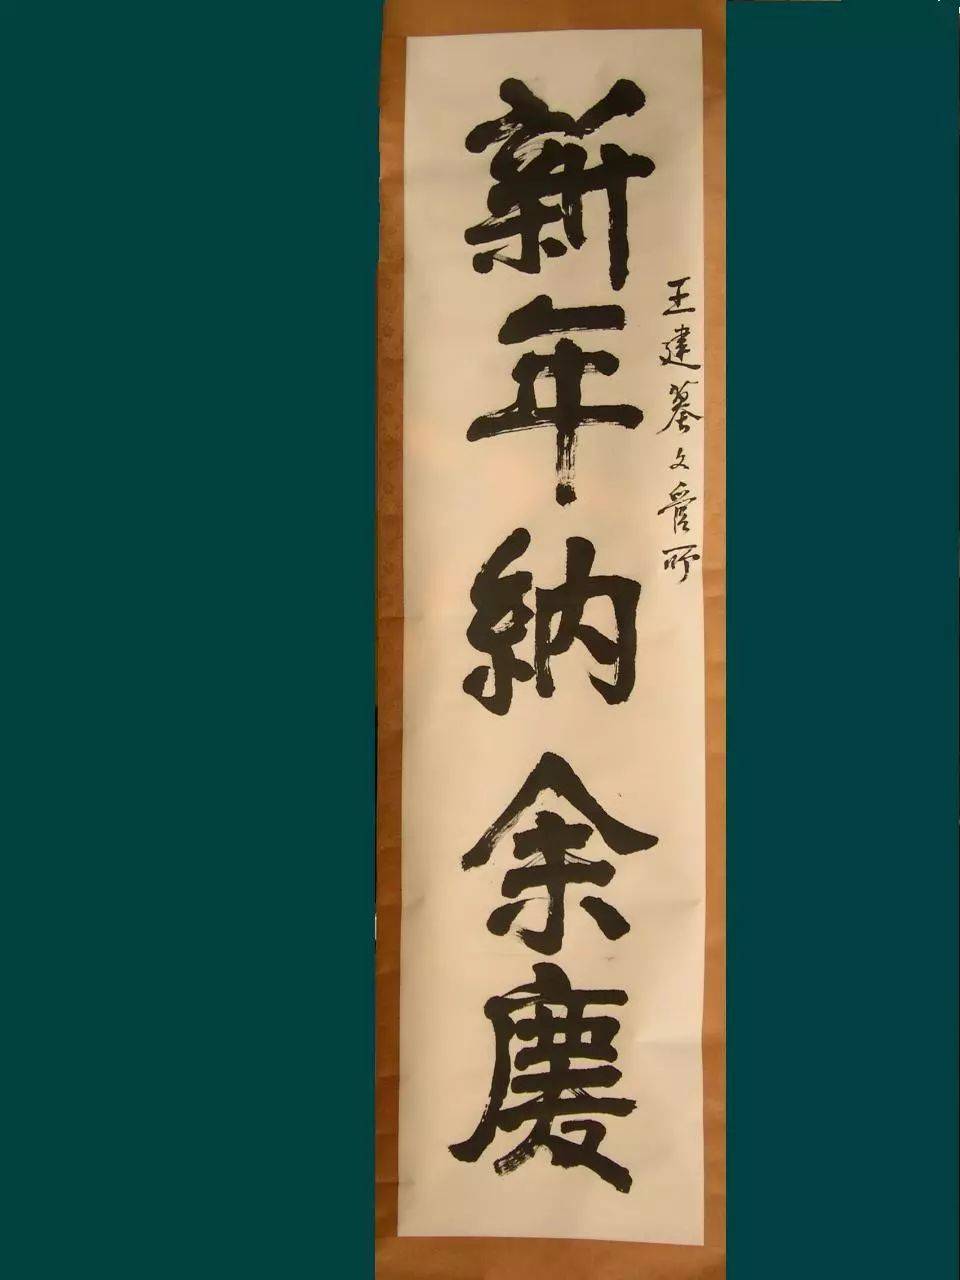 新年納余慶
王建墓文管所